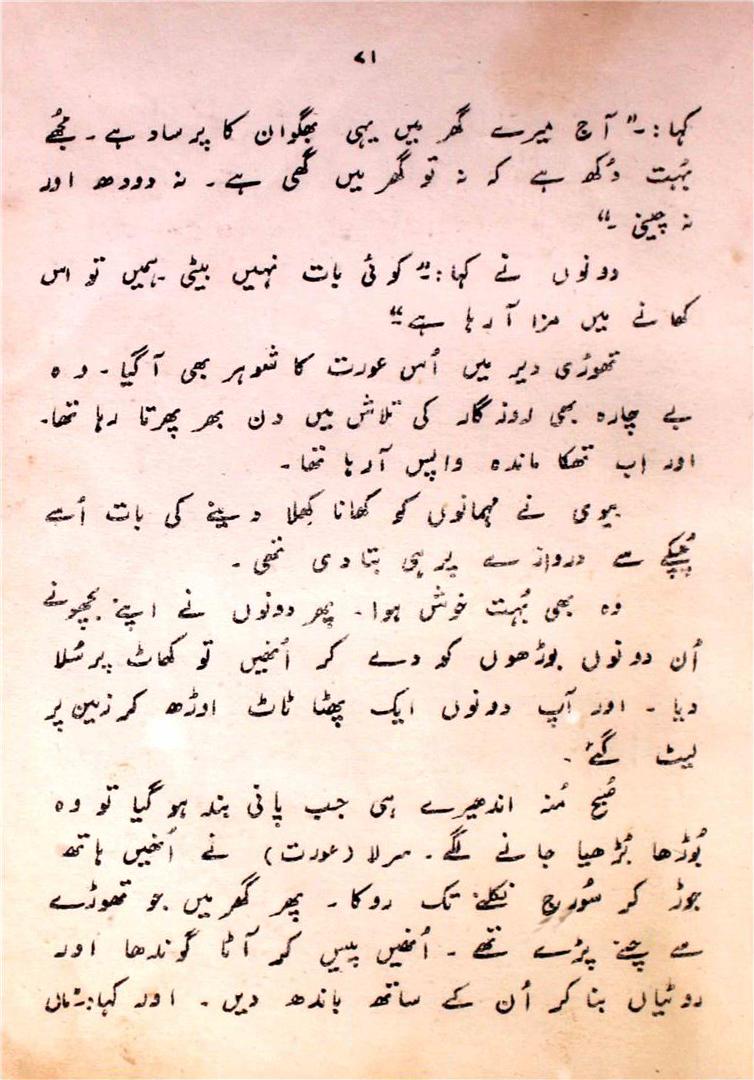 ۷۱
کہا:۔" آج میرے گھر میں یہی بھگوان کا پرساد ہے۔ مجھے
بُہت دُکھ ہے کہ نہ تو گھر میں گھی ہے۔ نہ دودھ اور
نہ چینی ۔"
دونوں نے کہا:۔" کوئی بات نہیں بیٹی۔ ہمیں تو اس
کھانے میں مزا آ رہا ہے۔"
تھوڑی دیر میں اُس عورت کا شوہر بھی آگیا۔ وہ
بے چارہ بھی روزگار کی تلاش میں دن بھر پھرتا رہا تھا۔
اور اب تھکا ماندہ واپس آرہا تھا۔
بیوی نے مہمانوں کو کھانا کھِلا دینے کی بات اُسے
چُپکے سے دروازے پر ہی بتا دی تھی۔
وہ بھی بُہت خوش ہوا۔ پھر دونوں نے اپنے بچھونے
اُن دونوں بوڑھوں کو دے کر اُنھیں تو کھاٹ پر سُلا
دیا۔ اور آپ دونوں ایک پھٹا ٹاٹ اوڑھ کر زمین پر
لیٹ گئے۔
صُبح مُنہ اندھیرے ہی جب پانی بند ہو گیا تو وہ
بُوڑھا بُڑھیا جانے لگے۔ سرلا (عورت) نے اُنھیں ہاتھ
جوڑ کر سُورج نکلنے تک روکا۔ پھر گھر میں جو تھوڑے
سے چنے پڑے تھے۔ اُنھیں پیس کر آٹا گوندھا اور
روٹیاں بنا کر اُن کے ساتھ باندھ دیں۔ اور کہا:۔"ماں